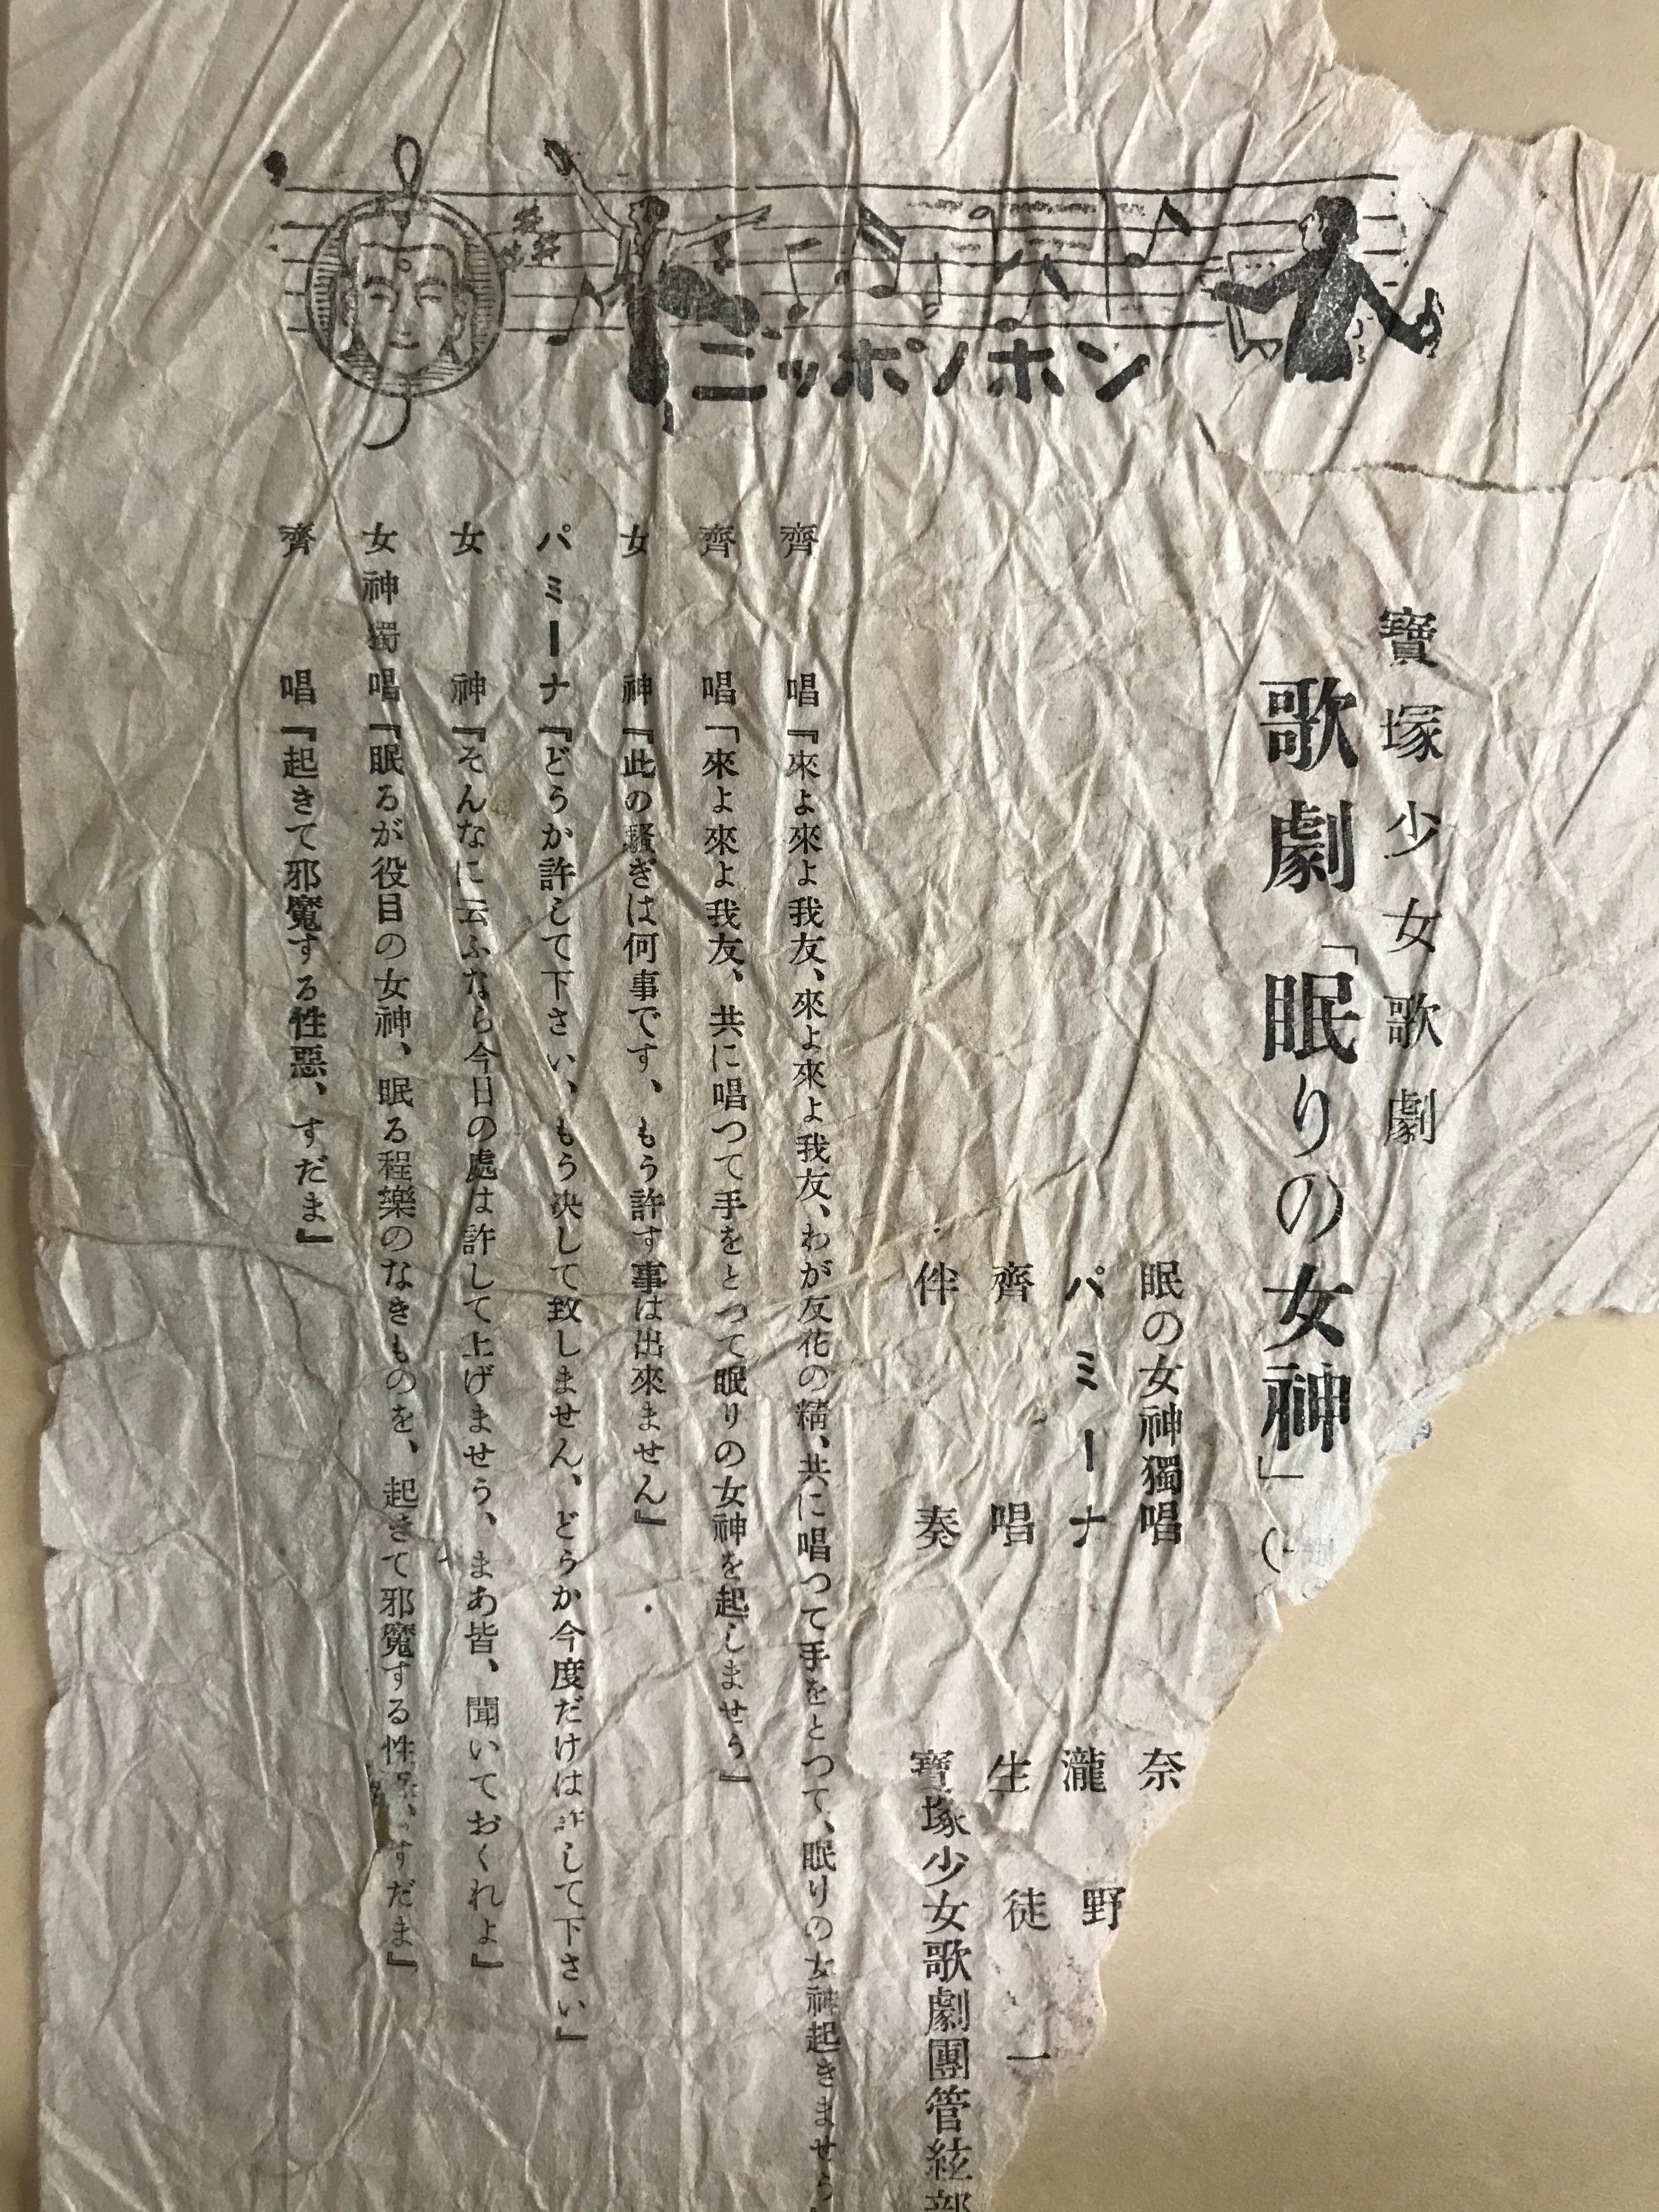 ニッポンホン
寶塚少女歌劇
歌劇「眠りの女神」(
眠の女神獨唱 奈
パミーナ 瀧野
齊唱 生徒一
伴奏 寶塚少女歌劇團管絃部
齊唱『來よ來よ我友、來よ來よ我友、わが友花の精、共に唱つて手をとつて、眠りの女神起きませう
齊唱「來よ來よ我友、共に唱つて手をとつて眠りの女神を起しませう』
女神『此の騷ぎは何事です、もう許す事は出來ません』
パミーナ『どうか許して下さい、もう決して致しません、どうか今度だけは許して下さい』
女神『そんなに云ふなら今日の處は許して上げませう、まあ皆、聞いておくれよ』
女神獨唱『眠るが役目の女神、眠る程樂のなきものを、起きて邪魔する性惡、すだま』
齊唱『起きて邪魔する性惡、すだま』